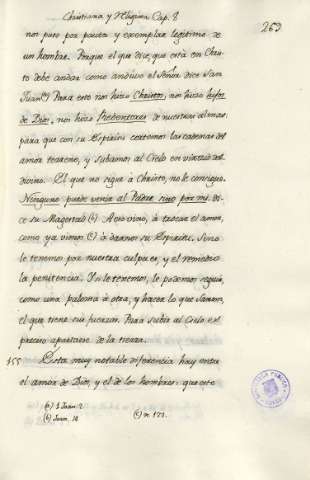 Christiana y Religiosa Cap. 8
263
nos puso por pauta y exemplar legitimo de
un hombre. Porque el que dice, que está en Chris-
to debe andar como anduvo el Señor dice San
Juan (a) Para esto nos hizo Christos, nos hizo hijos
de Dios, nos hizo Redentores de nuestras almas,
para que con su Espiritu cortemos las cadenas del
amor terreno, y subamos al Cielo en virtud del
divino. El que no sigue a Christo, no le consigue.
Ninguno puede venir al Padre sino por mi, di-
ce su Magestad (b) A eso vino, á traernos el amor,
como ya vimos (c) á darnos su Espiritu. Si no
le tenemos por nuestra culpa, es el remedio
la penitencia. Y si le tenemos, le podemos seguir,
como una paloma á otra, y hacer lo que Sanson,
el que tiene sus fuerzas. Para subir al Cielo es
preciso apartarse de la tierra.
155 Esta muy notable diferencia hay entre
el amor de Dios, y el de los hombres: que este
(a) 1 Juan 2
(b) Juan. 14
(c) n. 122.